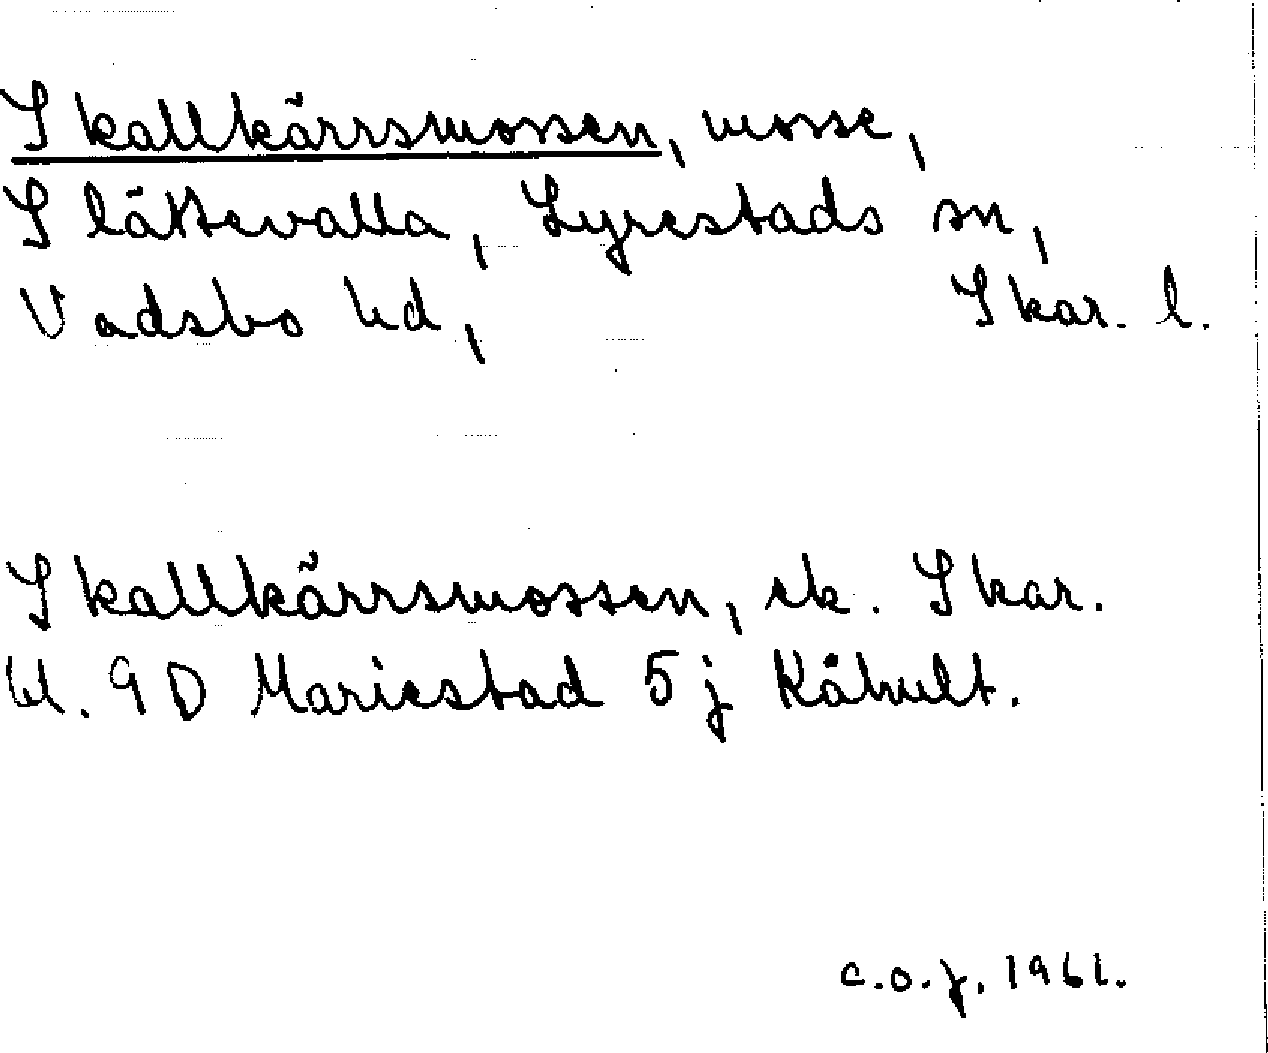 Skallkärrsmossen, mosse,
Slättevalla, Lyrestads sn,
Vadsbo hd, Skar. l.
Skallkärrsmossen, ek. Skar.
bl. 9D Mariestad 5j Råhult.
c.o.j. 1961.